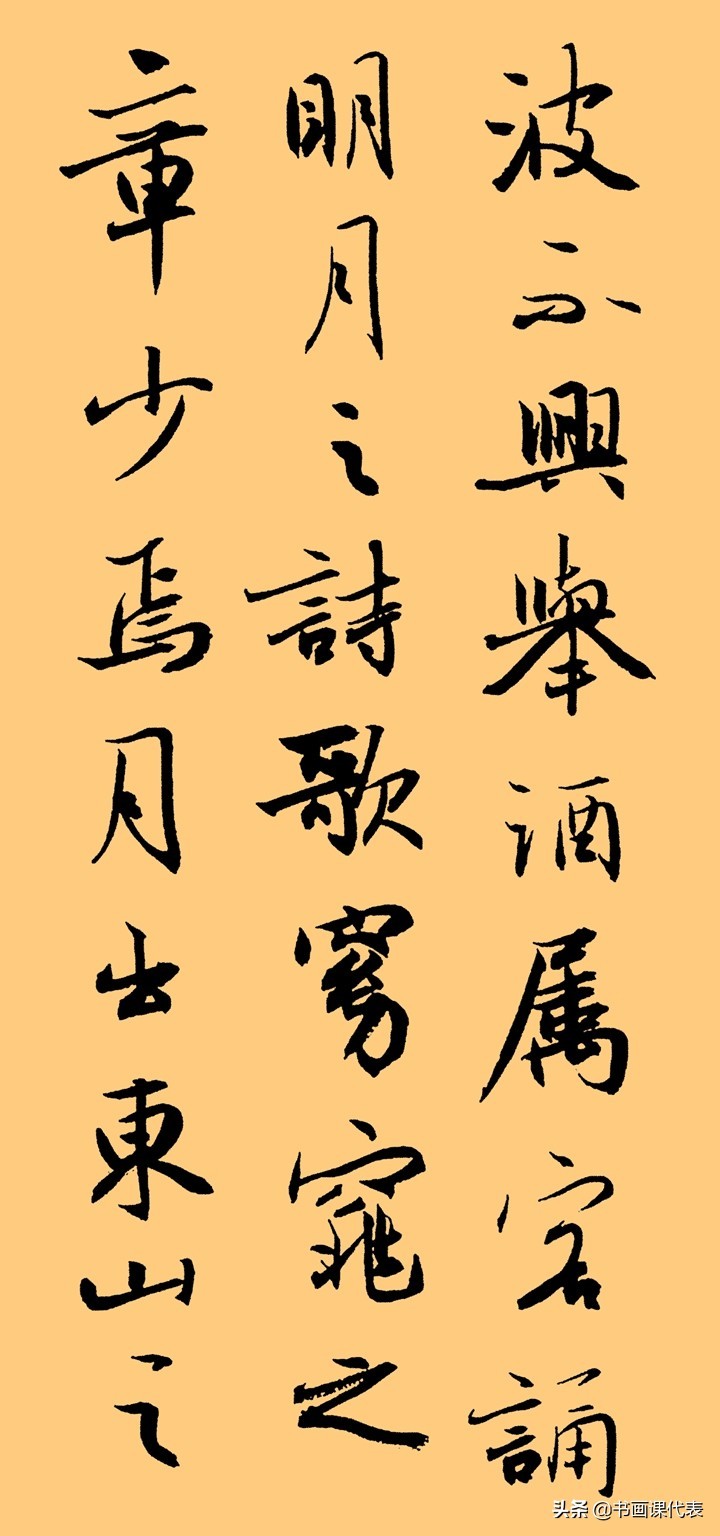 波不興舉酒属客誦
明月之詩歌窈窕之
章少焉月出東山之
头条 @书画课代表